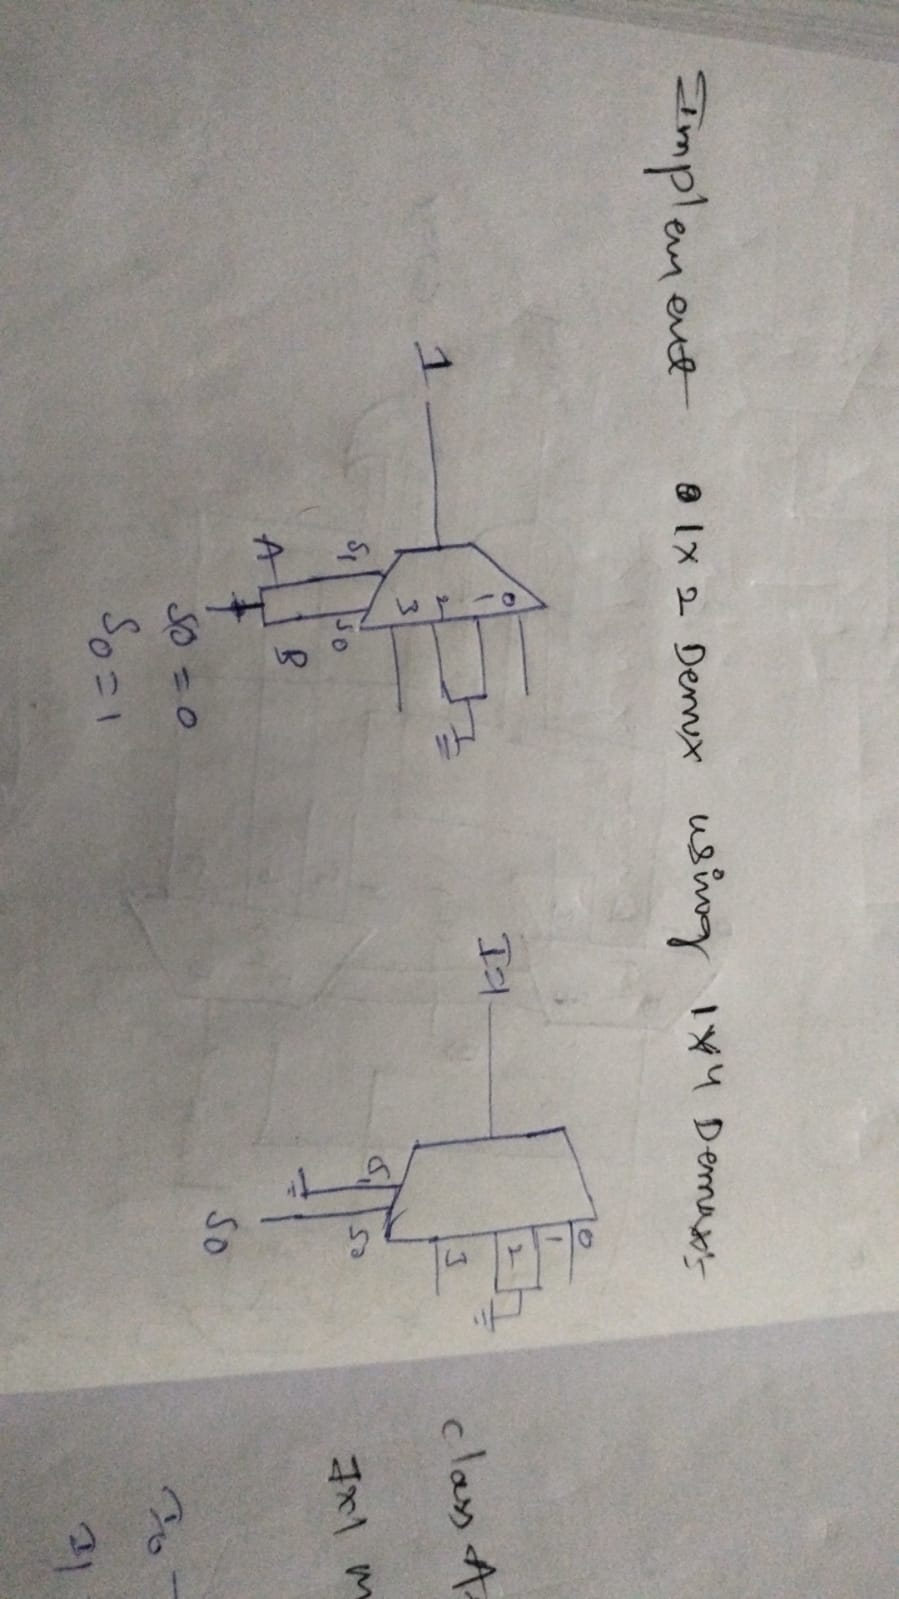 Implement 1x2 Demux using 1x4 Demux:-
1
0
1
2
3
S1
S0
A
B
S0 = 0
S0 = 1
I=1
0
1
2
3
S1
S0
S0
class A
Ix1 m
I0
I1